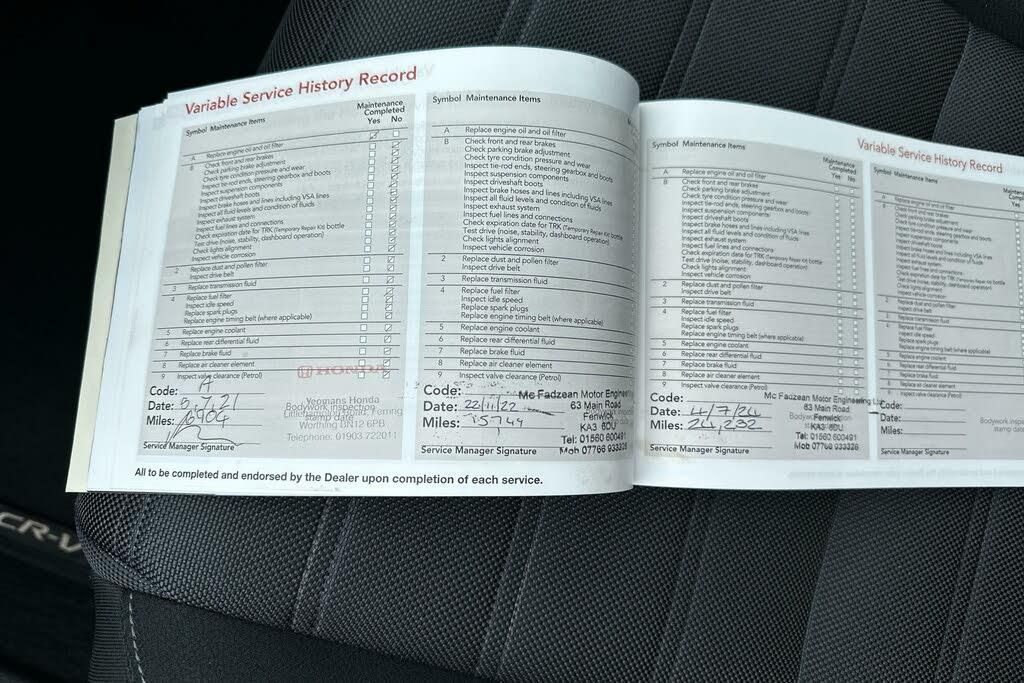 Variable Service History Record
Symbol Maintenance Items
Maintenance Completed
Yes No
A Replace engine oil and oil filter
B Check front and rear brakes
Check parking brake adjustment
Check tyre condition pressure and wear
Inspect tie-rod ends, steering gearbox and boots
Inspect suspension components
Inspect driveshaft boots
Inspect brake hoses and lines including VSA lines
Inspect all fluid levels and condition of fluids
Inspect exhaust system
Inspect fuel lines and connections
Check expiration date for TRK (Temporary Repair Kit) bottle
Test drive (noise, stability, dashboard operation)
Check lights alignment
Inspect vehicle corrosion
2 Replace dust and pollen filter
Inspect drive belt
3 Replace transmission fluid
4 Replace fuel filter
Inspect idle speed
Replace spark plugs
Replace engine timing belt (where applicable)
5 Replace engine coolant
6 Replace rear differential fluid
7 Replace brake fluid
8 Replace air cleaner element
9 Inspect valve clearance (Petrol)
HONDA
Code: A
Date: 5,7,21
Miles: 6904
Yeomans Honda
Bodywork inspection
stamp date
Worthing BN12 6PB
Telephone: 01903 722011
Service Manager Signature
Symbol Maintenance Items
A Replace engine oil and oil filter
B Check front and rear brakes
Check parking brake adjustment
Check tyre condition pressure and wear
Inspect tie-rod ends, steering gearbox and boots
Inspect suspension components
Inspect driveshaft boots
Inspect brake hoses and lines including VSA lines
Inspect all fluid levels and condition of fluids
Inspect exhaust system
Inspect fuel lines and connections
Check expiration date for TRK (Temporary Repair Kit) bottle
Test drive (noise, stability, dashboard operation)
Check lights alignment
Inspect vehicle corrosion
2 Replace dust and pollen filter
Inspect drive belt
3 Replace transmission fluid
4 Replace fuel filter
Inspect idle speed
Replace spark plugs
Replace engine timing belt (where applicable)
5 Replace engine coolant
6 Replace rear differential fluid
7 Replace brake fluid
8 Replace air cleaner element
9 Inspect valve clearance (Petrol)
Code:
Date: 22/11/22
Miles: 15749
Mc Fadzean Motor Engineering
63 Main Road
Fenwick
KA3 6DU
Tel: 01560 600491
Mob 07766 933328
Service Manager Signature
All to be completed and endorsed by the Dealer upon completion of each service.
Variable Service History Record
Symbol Maintenance Items
Maintenance Completed
Yes No
A Replace engine oil and oil filter
B Check front and rear brakes
Check parking brake adjustment
Check tyre condition pressure and wear
Inspect tie-rod ends, steering gearbox and boots
Inspect suspension components
Inspect driveshaft boots
Inspect brake hoses and lines including VSA lines
Inspect all fluid levels and condition of fluids
Inspect exhaust system
Inspect fuel lines and connections
Check expiration date for TRK (Temporary Repair Kit) bottle
Test drive (noise, stability, dashboard operation)
Check lights alignment
Inspect vehicle corrosion
2 Replace dust and pollen filter
Inspect drive belt
3 Replace transmission fluid
4 Replace fuel filter
Inspect idle speed
Replace spark plugs
Replace engine timing belt (where applicable)
5 Replace engine coolant
6 Replace rear differential fluid
7 Replace brake fluid
8 Replace air cleaner element
9 Inspect valve clearance (Petrol)
Code:
Date: 4/7/24
Miles: 24,232
Mc Fadzean Motor Engineering Ltd
63 Main Road
Fenwick
KA3 6DU
Tel: 01560 600491
Mob 07766 933328
Service Manager Signature
Symbol Maintenance Items
A Replace engine oil and oil filter
B Check front and rear brakes
Check parking brake adjustment
Check tyre condition pressure and wear
Inspect tie-rod ends, steering gearbox and boots
Inspect suspension components
Inspect driveshaft boots
Inspect brake hoses and lines including VSA lines
Inspect all fluid levels and condition of fluids
Inspect exhaust system
Inspect fuel lines and connections
Check expiration date for TRK (Temporary Repair Kit) bottle
Test drive (noise, stability, dashboard operation)
Check lights alignment
Inspect vehicle corrosion
2 Replace dust and pollen filter
Inspect drive belt
3 Replace transmission fluid
4 Replace fuel filter
Inspect idle speed
Replace spark plugs
Replace engine timing belt (where applicable)
5 Replace engine coolant
6 Replace rear differential fluid
7 Replace brake fluid
8 Replace air cleaner element
9 Inspect valve clearance (Petrol)
Code:
Date:
Miles:
Service Manager Signature
CR-V